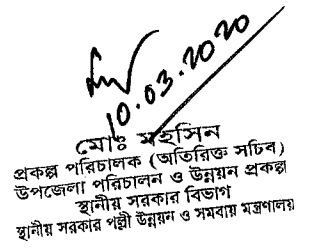 10.03.2020
মোঃ মহসিন
প্রকল্প পরিচালক (অতিরিক্ত সচিব)
উপজেলা পরিচালন ও উন্নয়ন প্রকল্প
স্থানীয় সরকার বিভাগ
স্থানীয় সরকার পল্লী উন্নয়ন ও সমবায় মন্ত্রণালয়